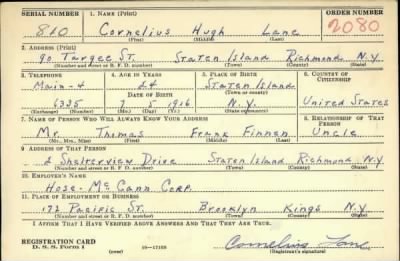 SERIAL NUMBER 1. NAME (Print) ORDER NUMBER
810 Cornelius Hugh Lane 2080
(First) (Middle) (Last)
2. ADDRESS (Print)
90 Targee St. Staten Island Richmond N.Y.
(Number and street or R. F. D. number) (Town) (County) (State)
3. TELEPHONE 4. AGE IN YEARS 5. PLACE OF BIRTH 6. COUNTRY OF CITIZENSHIP
Main-4 24 Staten Island
DATE OF BIRTH (Town or county)
6335 1 5 1916 N.Y. United States
(Exchange) (Number) (Mo.) (Day) (Yr.) (State or country)
7. NAME OF PERSON WHO WILL ALWAYS KNOW YOUR ADDRESS 8. RELATIONSHIP OF THAT PERSON
Mr. Thomas Frank Finnen Uncle
(Mr., Mrs., Miss) (First) (Middle) (Last)
9. ADDRESS OF THAT PERSON
2 Shelterview Drive Staten Island Richmond N.Y.
(Number and street or R. F. D. number) (Town) (County) (State)
10. EMPLOYER'S NAME
Hose-McCann Corp.
11. PLACE OF EMPLOYMENT OR BUSINESS
172 Pacific St. Brooklyn Kings N.Y.
(Number and street or R. F. D. number) (Town) (County) (State)
I AFFIRM THAT I HAVE VERIFIED ABOVE ANSWERS AND THAT THEY ARE TRUE.
REGISTRATION CARD
D. S. S. Form 1 (over) 16—17105 Cornelius Lane
(Registrant's signature)